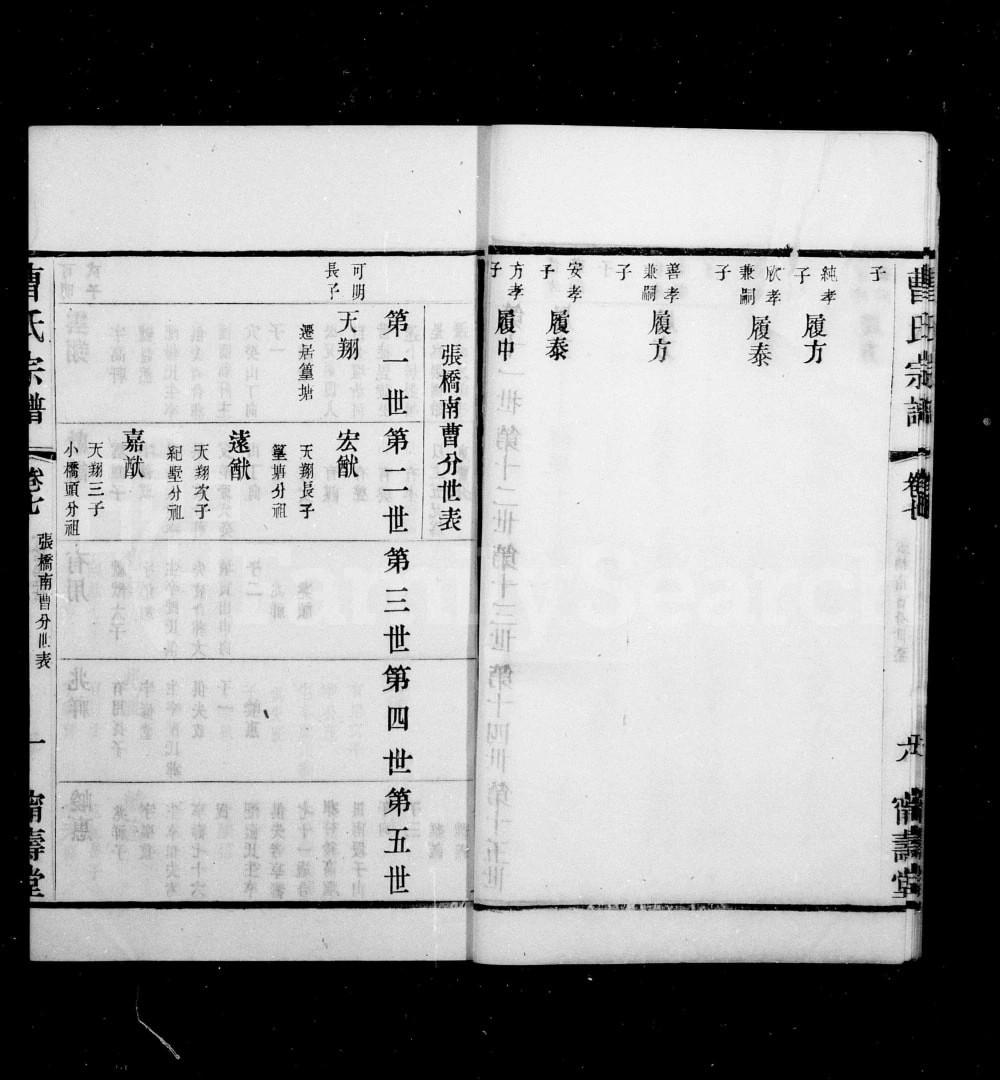 曹氏宗譜
卷七
六
甯壽堂
子
純孝
子
履方
欣孝
兼嗣
子
履泰
善孝
兼嗣
子
履方
安孝
子
履泰
方孝
子
履中
張橋南曹分世表
第一世
第二世
第三世
第四世
第五世
可明
長子
天翔
遷居篁塘
宏猷
天翔長子
篁塘分祖
遠猷
天翔次子
紀墅分祖
嘉猷
天翔三子
小橋頭分祖
曹氏宗譜
卷七
張橋南曹分世表
一
甯壽堂